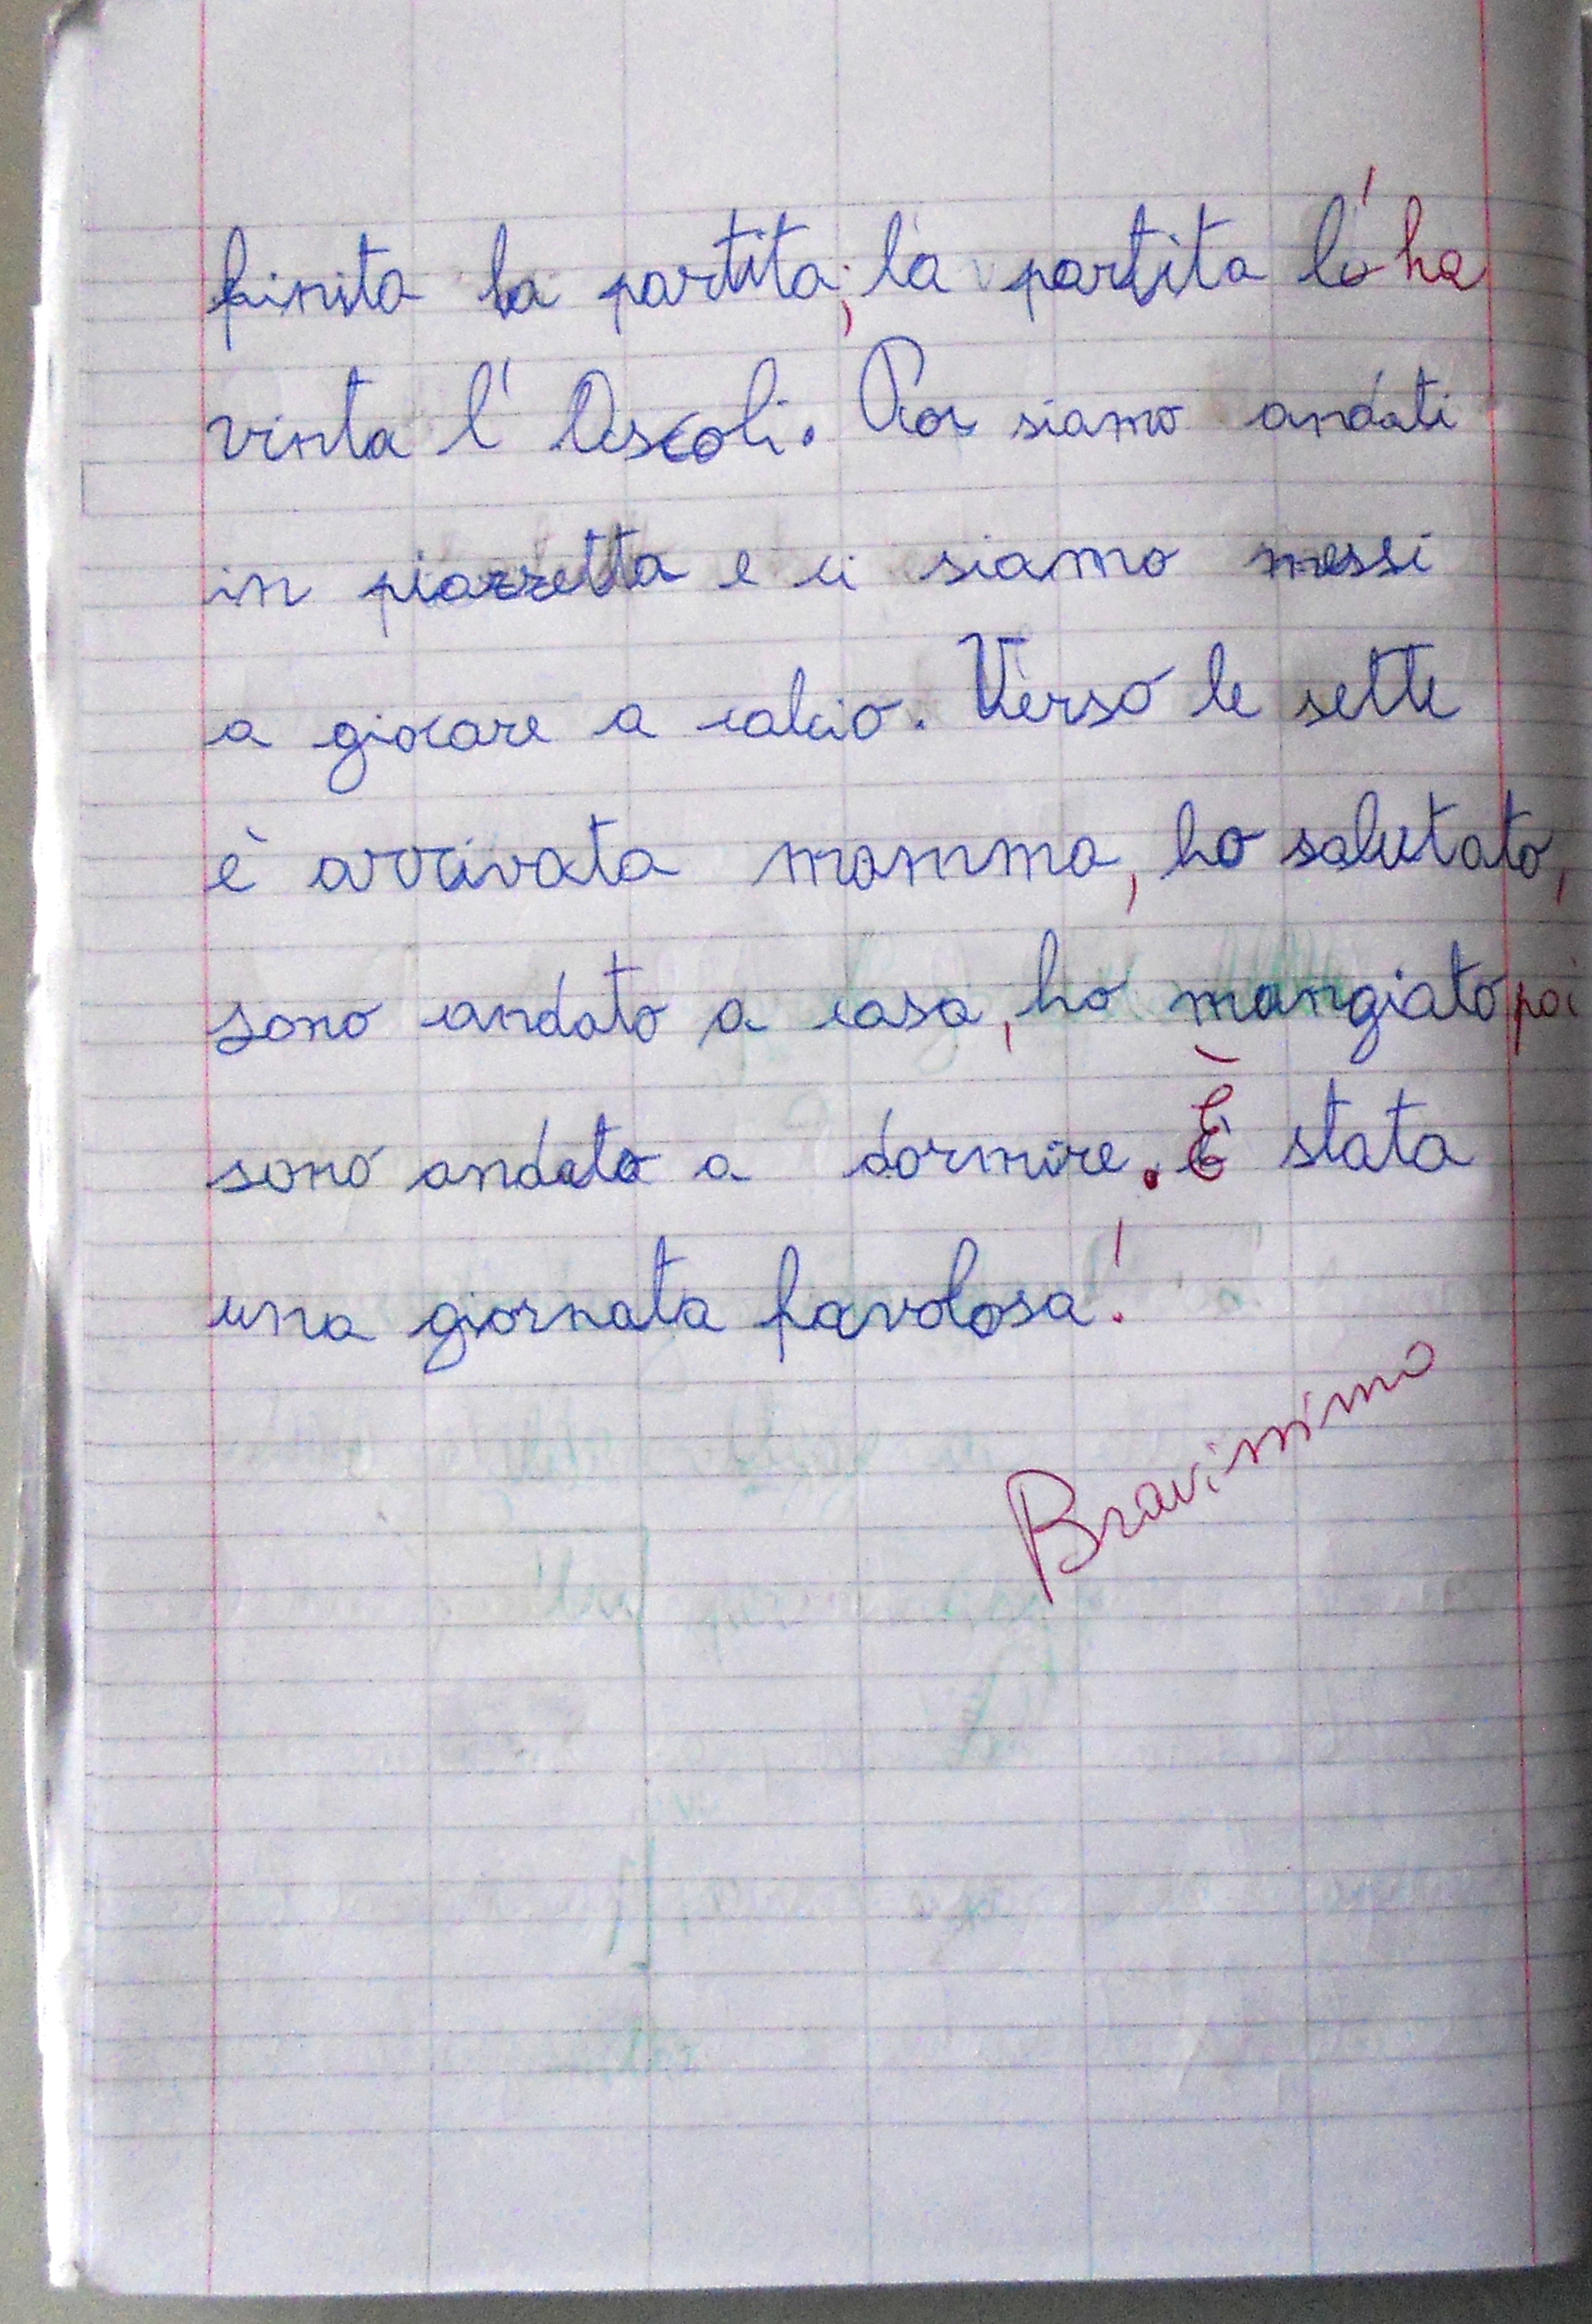 finita la partita; la partita l'ha
vinta l'Ascoli. Poi siamo andati
in piazzetta e ci siamo messi
a giocare a calcio. Verso le sette
è arrivata mamma, ho salutato,
sono andato a casa, ho mangiato poi
sono andato a dormire. È stata
una giornata favolosa!
Bravissimo